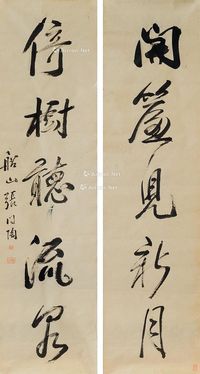 開簾見新月
倚樹聽流泉
船山張問陶